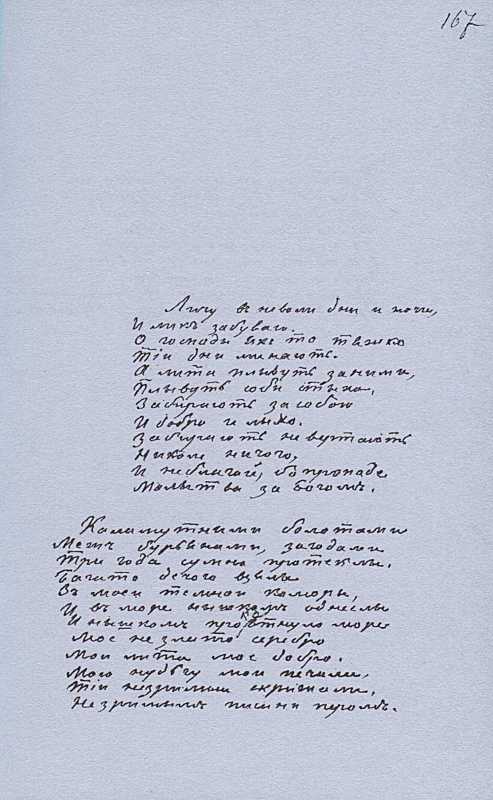 167
Личу в неволи дни и ночи,
И ликъ забуваю.
О господи яке то тяжко
Тіи дни минають.
А лита плывуть за ними,
Плывуть соби стыха,
Забирають за собою
И добро и лыхо.
Забирають не вертають
Николи ничого,
И не благай, бо пропаде
Молытва за Богомъ.
Каламутними болотами
Межъ бурьянами, за годами
Три года сумно протеклы.
Багато дечого взялы
Зъ моеи темнои коморы,
И въ море нышкомъ однеслы
И нышкомъ проковтнуло море
Мое не злато серебро
Мои лита мое добро.
Мою нудьгу мои печали,
Тіи незримыи скрижали,
Незримымъ писани перомъ.